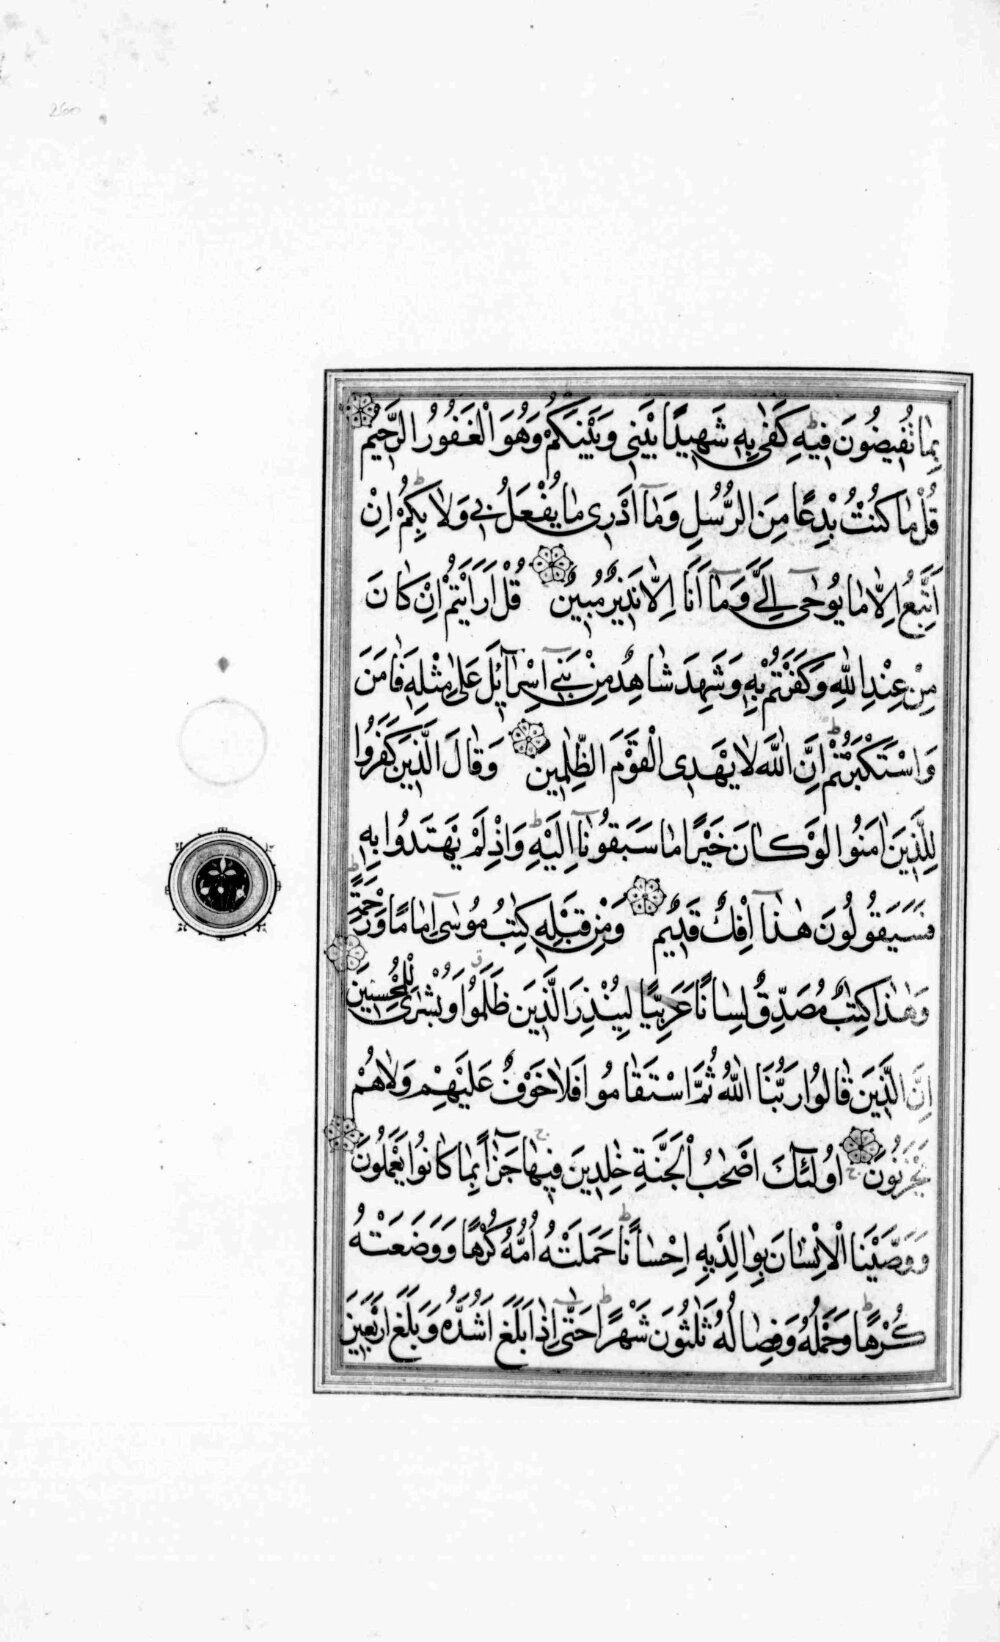 بِمَا تُفِيضُونَ فِيهِ كَفٰى بِهِ شَهِيدًا بَيْنِي وَبَيْنَكُمْ وَهُوَ الْغَفُورُ الرَّحِيمُ
قُلْ مَا كُنْتُ بِدْعًا مِنَ الرُّسُلِ وَمَآ اَدْرِى مَا يُفْعَلُ بِى وَلَا بِكُمْ اِنْ
اَتَّبِعُ اِلَّا مَا يُوحٰٓى اِلَيَّ وَمَآ اَنَا اِلَّا نَذِيرٌ مُبِينٌ قُلْ اَرَاَيْتُمْ اِنْ كَانَ
مِنْ عِنْدِ اللّٰهِ وَكَفَرْتُمْ بِهِ وَشَهِدَ شَاهِدٌ مِنْ بَنِىٓ اِسْرَآئِلَ عَلٰى مِثْلِهِ فَاٰمَنَ
وَاسْتَكْبَرْتُمْ اِنَّ اللّٰهَ لَا يَهْدِى الْقَوْمَ الظّٰلِمِينَ وَقَالَ الَّذِينَ كَفَرُوا
لِلَّذِينَ اٰمَنُوا لَوْ كَانَ خَيْرًا مَا سَبَقُونَآ اِلَيْهِ وَاِذْ لَمْ يَهْتَدُوا بِهِ
فَسَيَقُولُونَ هٰذَآ اِفْكٌ قَدِيمٌ وَمِنْ قَبْلِهِ كِتٰبُ مُوسٰٓى اِمَامًا وَرَحْمَةً
وَهٰذَا كِتٰبٌ مُصَدِّقٌ لِسَانًا عَرَبِيًّا لِيُنْذِرَ الَّذِينَ ظَلَمُوا وَبُشْرٰى لِلْمُحْسِنِينَ
اِنَّ الَّذِينَ قَالُوا رَبُّنَا اللّٰهُ ثُمَّ اسْتَقَامُوا فَلَا خَوْفٌ عَلَيْهِمْ وَلَا هُمْ
يَحْزَنُونَ اُولٰٓئِكَ اَصْحٰبُ الْجَنَّةِ خٰلِدِينَ فِيهَا جَزَآءً بِمَا كَانُوا يَعْمَلُونَ
وَوَصَّيْنَا الْاِنْسَانَ بِوَالِدَيْهِ اِحْسَانًا حَمَلَتْهُ اُمُّهُ كُرْهًا وَوَضَعَتْهُ
كُرْهًا وَحَمْلُهُ وَفِصَالُهُ ثَلٰثُونَ شَهْرًا حَتّٰٓى اِذَا بَلَغَ اَشُدَّهُ وَبَلَغَ اَرْبَعِينَ